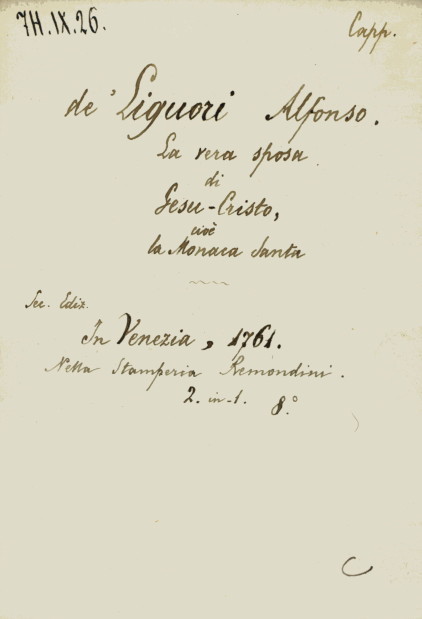 7H.IX.26.
Capp.
de' Liguori Alfonso.
La vera sposa
di
Gesu-Cristo,
cioè
la Monaca Santa
Sec. Ediz.
In Venezia, 1761.
Nella Stamperia Remondini.
2. in-1. 8.°
C